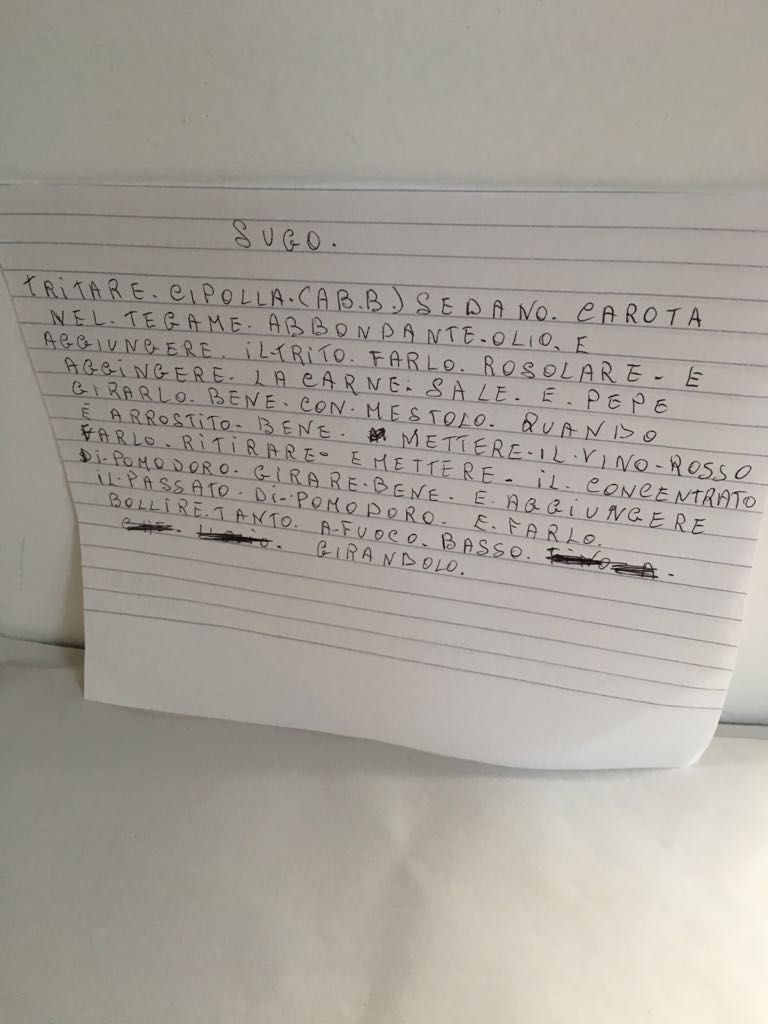 SUGO.
TRITARE. CIPOLLA. (AB.B) SEDANO. CAROTA
NEL. TEGAME. ABBONDANTE. OLIO. E
AGGIUNGERE. IL-TRITO. FARLO. ROSOLARE - E
AGGINGERE. LA CARNE. SALE. E. PEPE
GIRARLO. BENE. CON. MESTOLO. QUANDO
È ARROSTITO - BENE. METTERE - IL. VINO - ROSSO
FARLO - RITIRARE - E METTERE - IL. CONCENTRATO
DI - POMODORO. GIRARE. BENE. E. AGGIUNGERE
IL. PASSATO. DI - POMODORO. E. FARLO.
BOLLIRE. TANTO. A - FUOCO. BASSO.
GIRANDOLO.